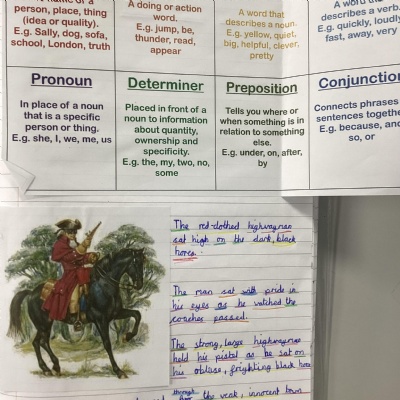 person, place, thing
(idea or quality).
E.g. Sally, dog, sofa,
school, London, truth
A doing or action
word.
E.g. jump, be,
thunder, read,
appear
A word that
describes a noun.
E.g. yellow, quiet,
big, helpful, clever,
pretty
describes a verb.
E.g. quickly, loudly
fast, away, very
Pronoun
In place of a noun
that is a specific
person or thing.
E.g. she, I, we, me, us
Determiner
Placed in front of a
noun to information
about quantity,
ownership and
specificity.
E.g. the, my, two, no,
some
Preposition
Tells you where or
when something is in
relation to something
else.
E.g. under, on, after,
by
Conjunction
Connects phrases
sentences togethe
E.g. because, and
so, or
The red-clothed highwayman
sat high on the dark, black
hores.
The man sat with pride in
his eyes as he watched the
coaches passed.
The strong, large highwayman
held his pistal as he sat on
his oblase, frighting black hores
through
the weak, innocent town